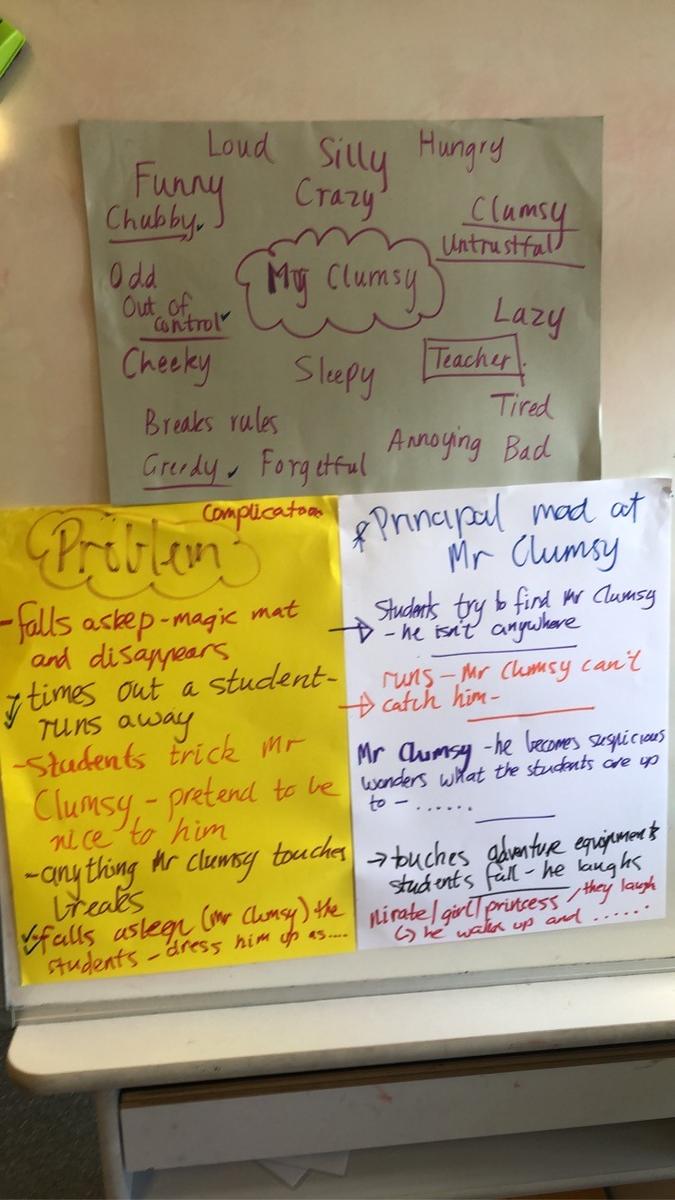 Loud Silly Hungry
Funny Crazy
Chubby Clumsy
Untrustful
Odd Mr Clumsy
Out of
control Lazy
Cheeky Sleepy Teacher
Tired
Breaks rules Annoying Bad
Greedy Forgetful
complication
Problem
-falls asleep-magic mat
and disappears
times out a student-
runs away
-Students trick Mr
Clumsy - pretend to be
nice to him
-anything Mr Clumsy touches
breaks
falls asleep (Mr Clumsy) the
students - dress him up as....
Principal mad at
Mr Clumsy
→ Students try to find Mr Clumsy
- he isn't anywhere
→ runs - Mr Clumsy can't
catch him-
Mr Clumsy - he becomes suspicious
wonders what the students are up
to - ......
→ touches adventure equipment &
students fall - he laughs
pirate/girl/princess / they laugh
↳ he wakes up and ......